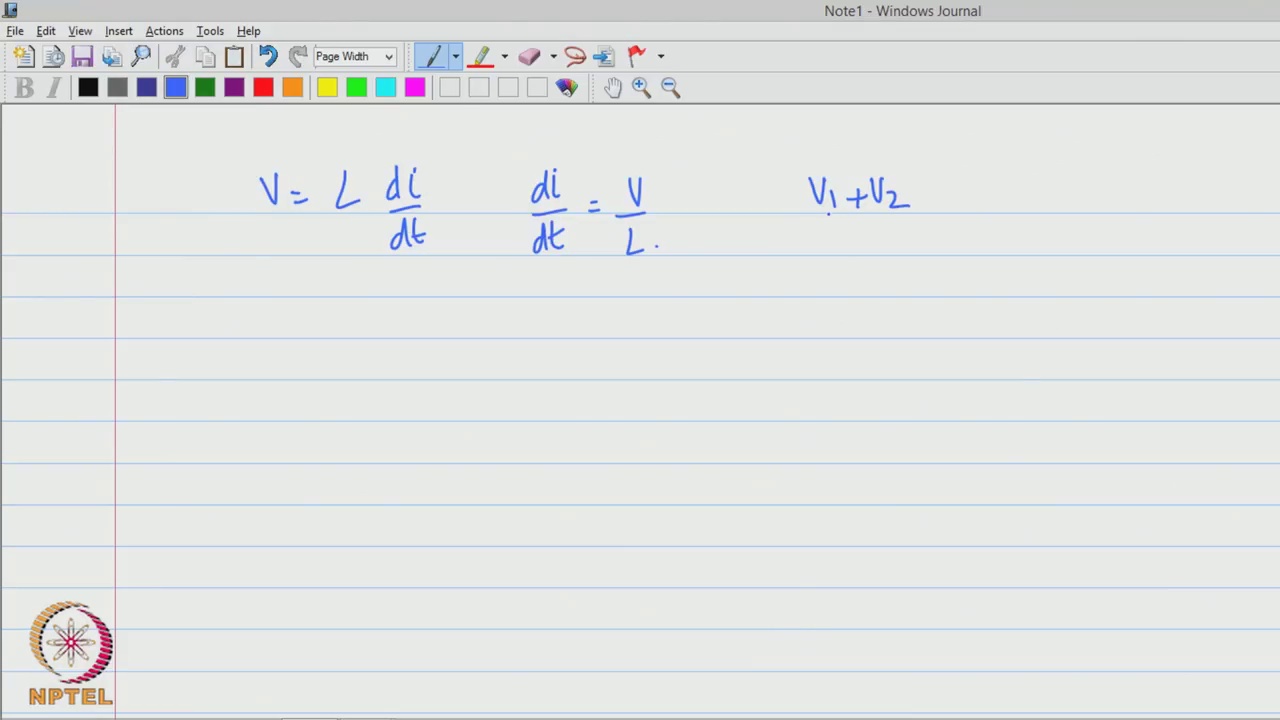 Note1 - Windows Journal
File Edit View Insert Actions Tools Help
Page Width
B I
V = L di/dt di/dt = V/L . V1 + V2
NPTEL